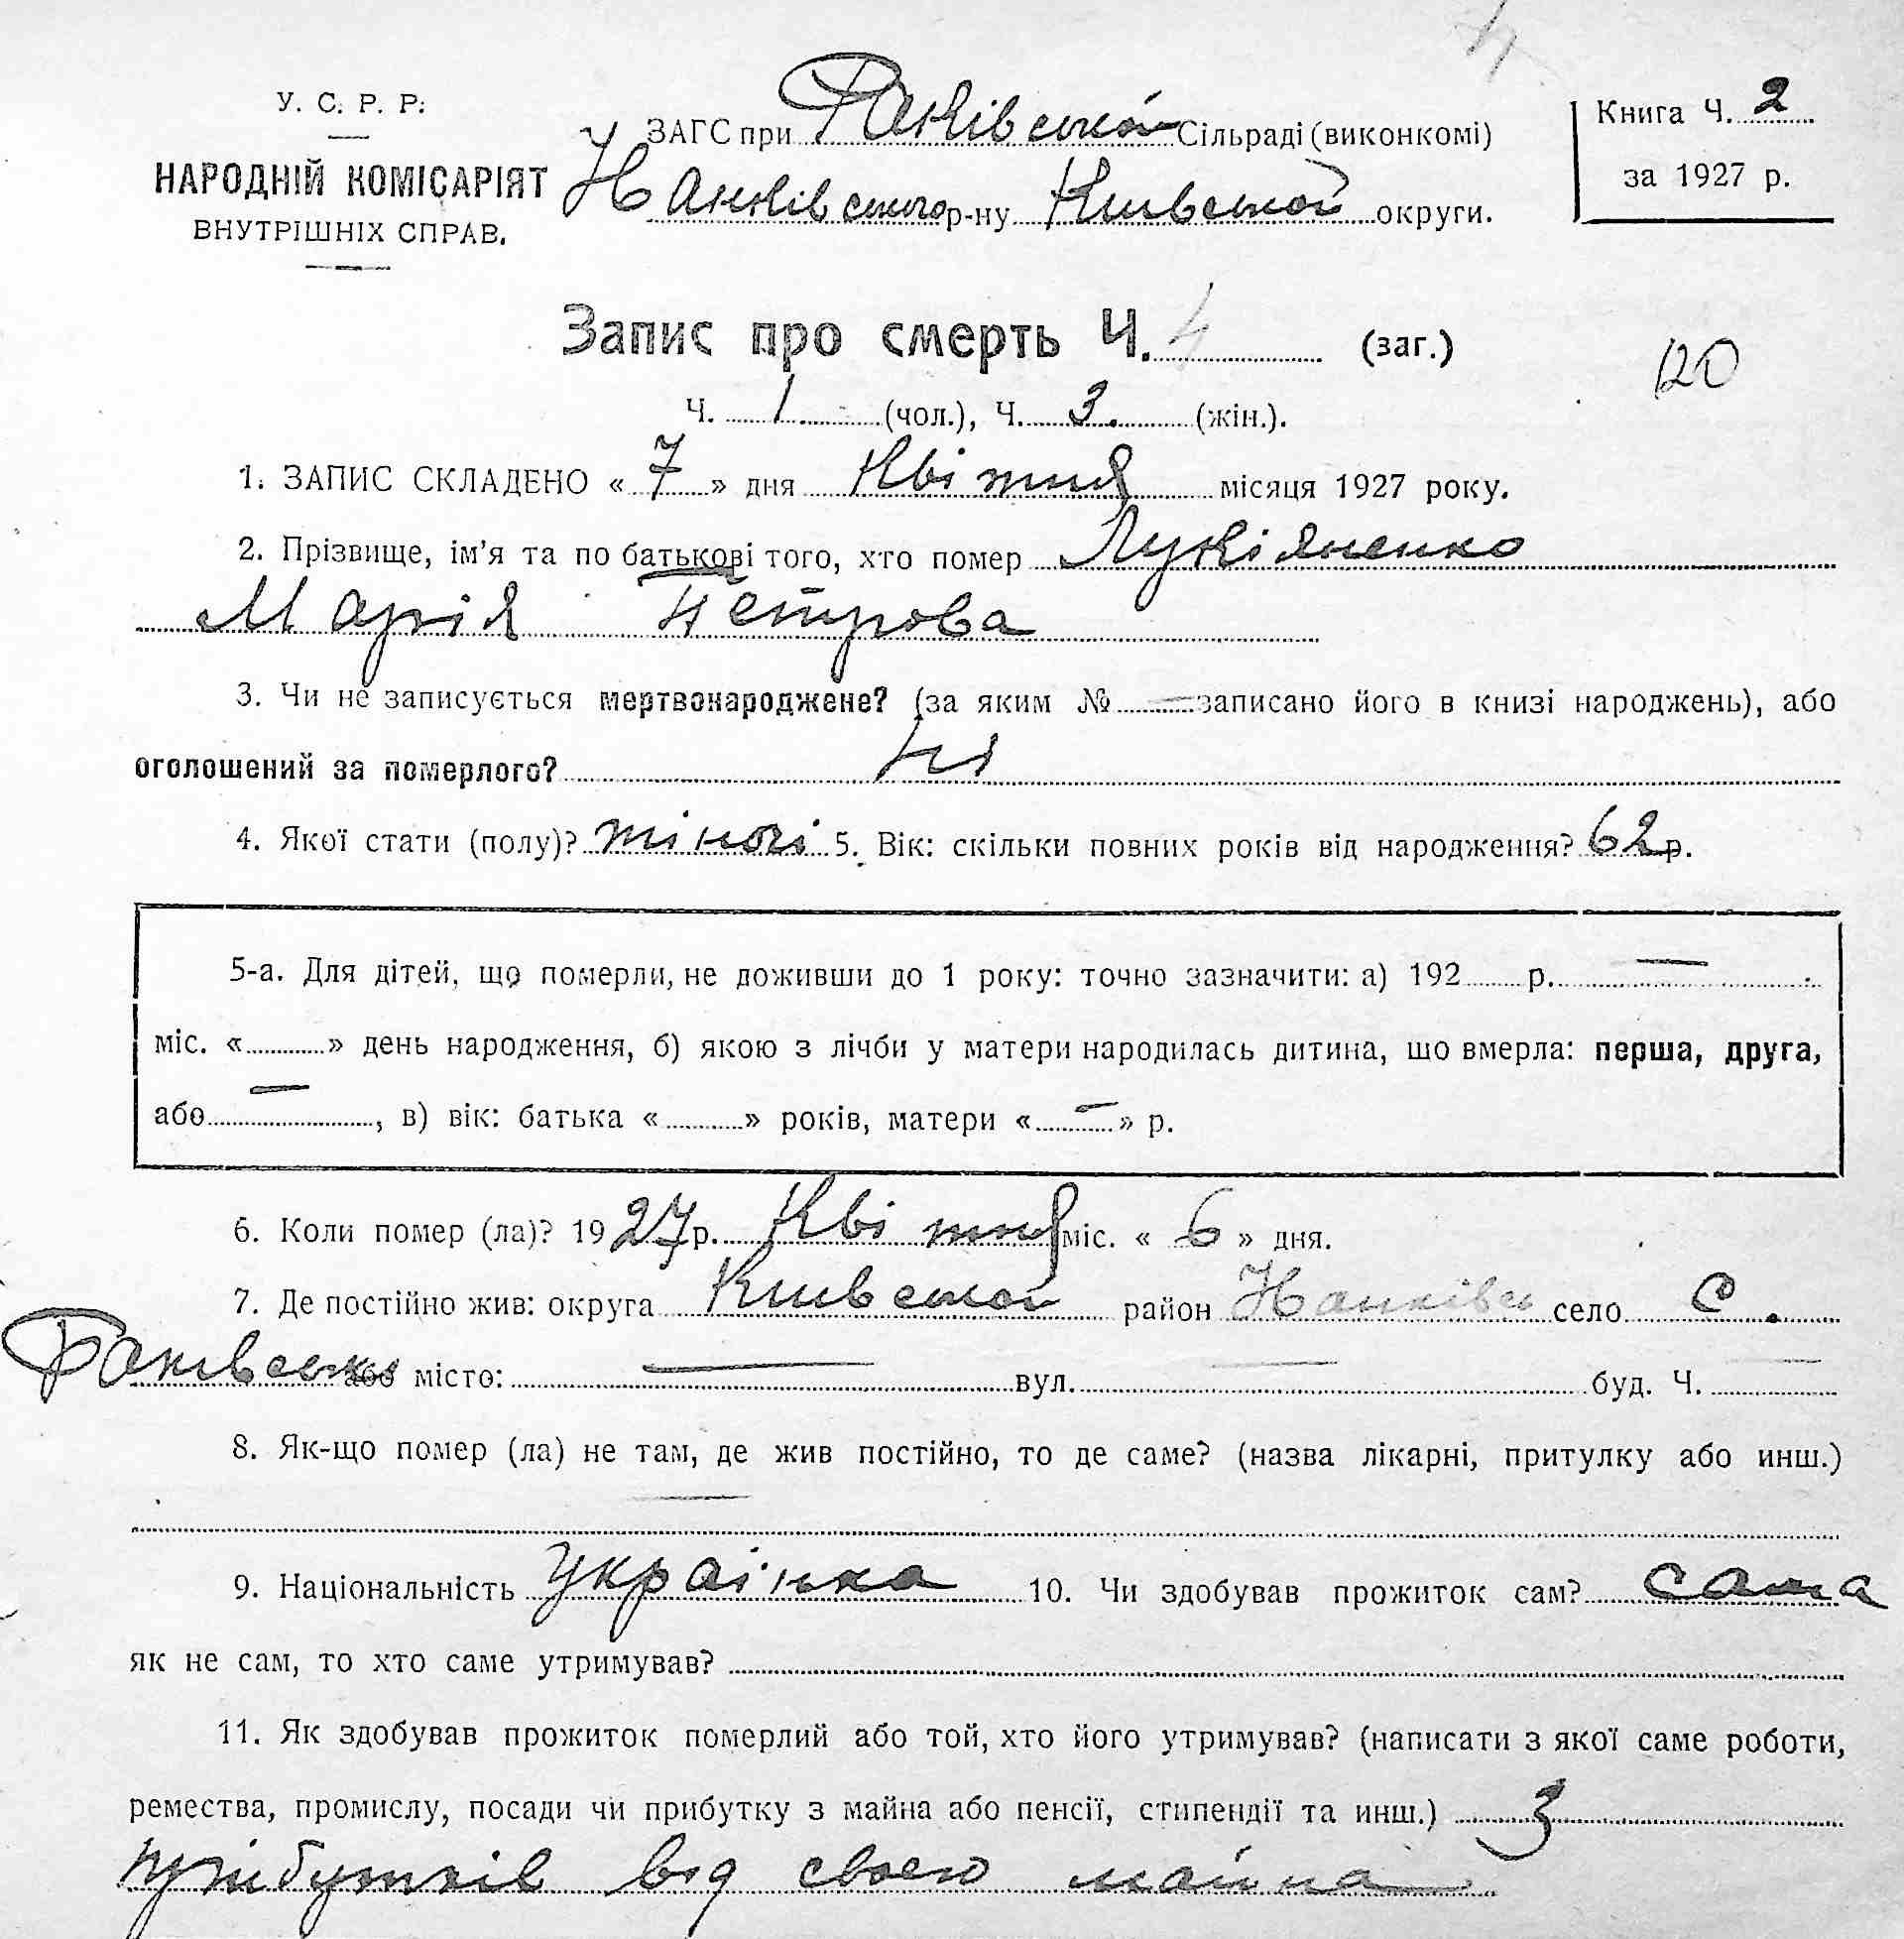 4
У. С. Р. Р.
НАРОДНІЙ КОМІСАРІЯТ
ВНУТРІШНІХ СПРАВ.
ЗАГС при Раківській Сільраді (виконкомі)
р-ну Київської округи.
Книга Ч. 2
за 1927 р.
Запис про смерть Ч. 4 (заг.)
120
Ч. 1 (чол.), Ч. 3. (жін.).
1. ЗАПИС СКЛАДЕНО « 7 » дня Квітня місяця 1927 року.
2. Прізвище, ім'я та по батькові того, хто помер Лукіяненко
Марія Петрова
3. Чи не записується мертвонароджене? (за яким № — записано його в книзі народжень), або
оголошений за померлого? Ні
4. Якої стати (полу)? жіночі 5. Вік: скільки повних років від народження? 62 р.
5-а. Для дітей, що померли, не доживши до 1 року: точно зазначити: а) 192 р. —
міс. « » день народження, б) якою з лічби у матери народилась дитина, що вмерла: перша, друга,
або — , в) вік: батька « » років, матери « — » р.
6. Коли помер (ла)? 1927 р. Квітня міс. « 6 » дня.
7. Де постійно жив: округа Київської район село С.
або місто: — вул. — буд. Ч. —
8. Як-що помер (ла) не там, де жив постійно, то де саме? (назва лікарні, притулку або инш.)
—
9. Національність Українка 10. Чи здобував прожиток сам? сама
як не сам, то хто саме утримував?
11. Як здобував прожиток померлий або той, хто його утримував? (написати з якої саме роботи,
ремества, промислу, посади чи прибутку з майна або пенсії, стипендії та инш.) З
прибутків від своего майна